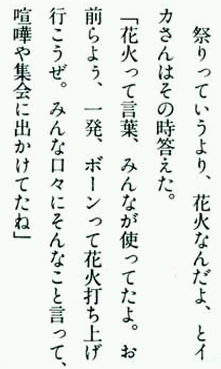 祭りっていうより、花火なんだよ、とイ
カさんはその時答えた。
「花火って言葉、みんなが使ってたよ。お
前らよう、一発、ボーンって花火打ち上げ
行こうぜ。みんな口々にそんなこと言って、
喧嘩や集会に出かけてたね」